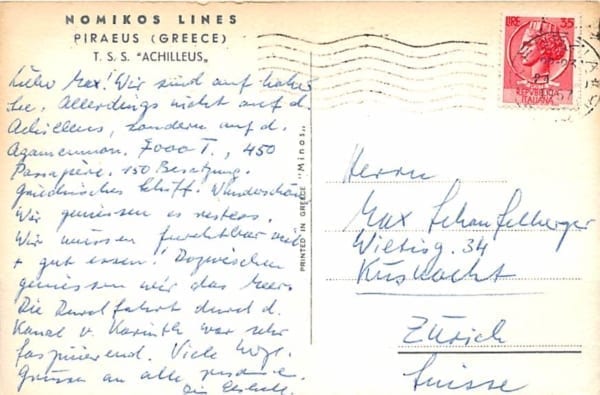 NOMIKOS LINES
PIRAEUS (GREECE)
T. S. S. "ACHILLEUS„
Lieber Max! Wir sind auf hoher
See. Allerdings nicht auf d.
Achilleus, sondern auf d.
Agamemnon. 7000 T., 450
Passagiere. 150 Besatzung.
Griechisches Schiff. Wunderschön
Wir geniessen es restlos.
Wir müssen furchtbar viel
+ gut essen! Dazwischen
geniessen wir das Meer.
Die Durchfahrt durch d.
Kanal v. Korinth war sehr
faszinierend. Viele herzl.
Grüsse an alle
PRINTED IN GREECE "Minos„
LIRE 35
REPVBBLICA
ITALIANA
Herrn
Max Schaufelberger
Wiltisg. 34
Küsnacht
Zürich
Suisse